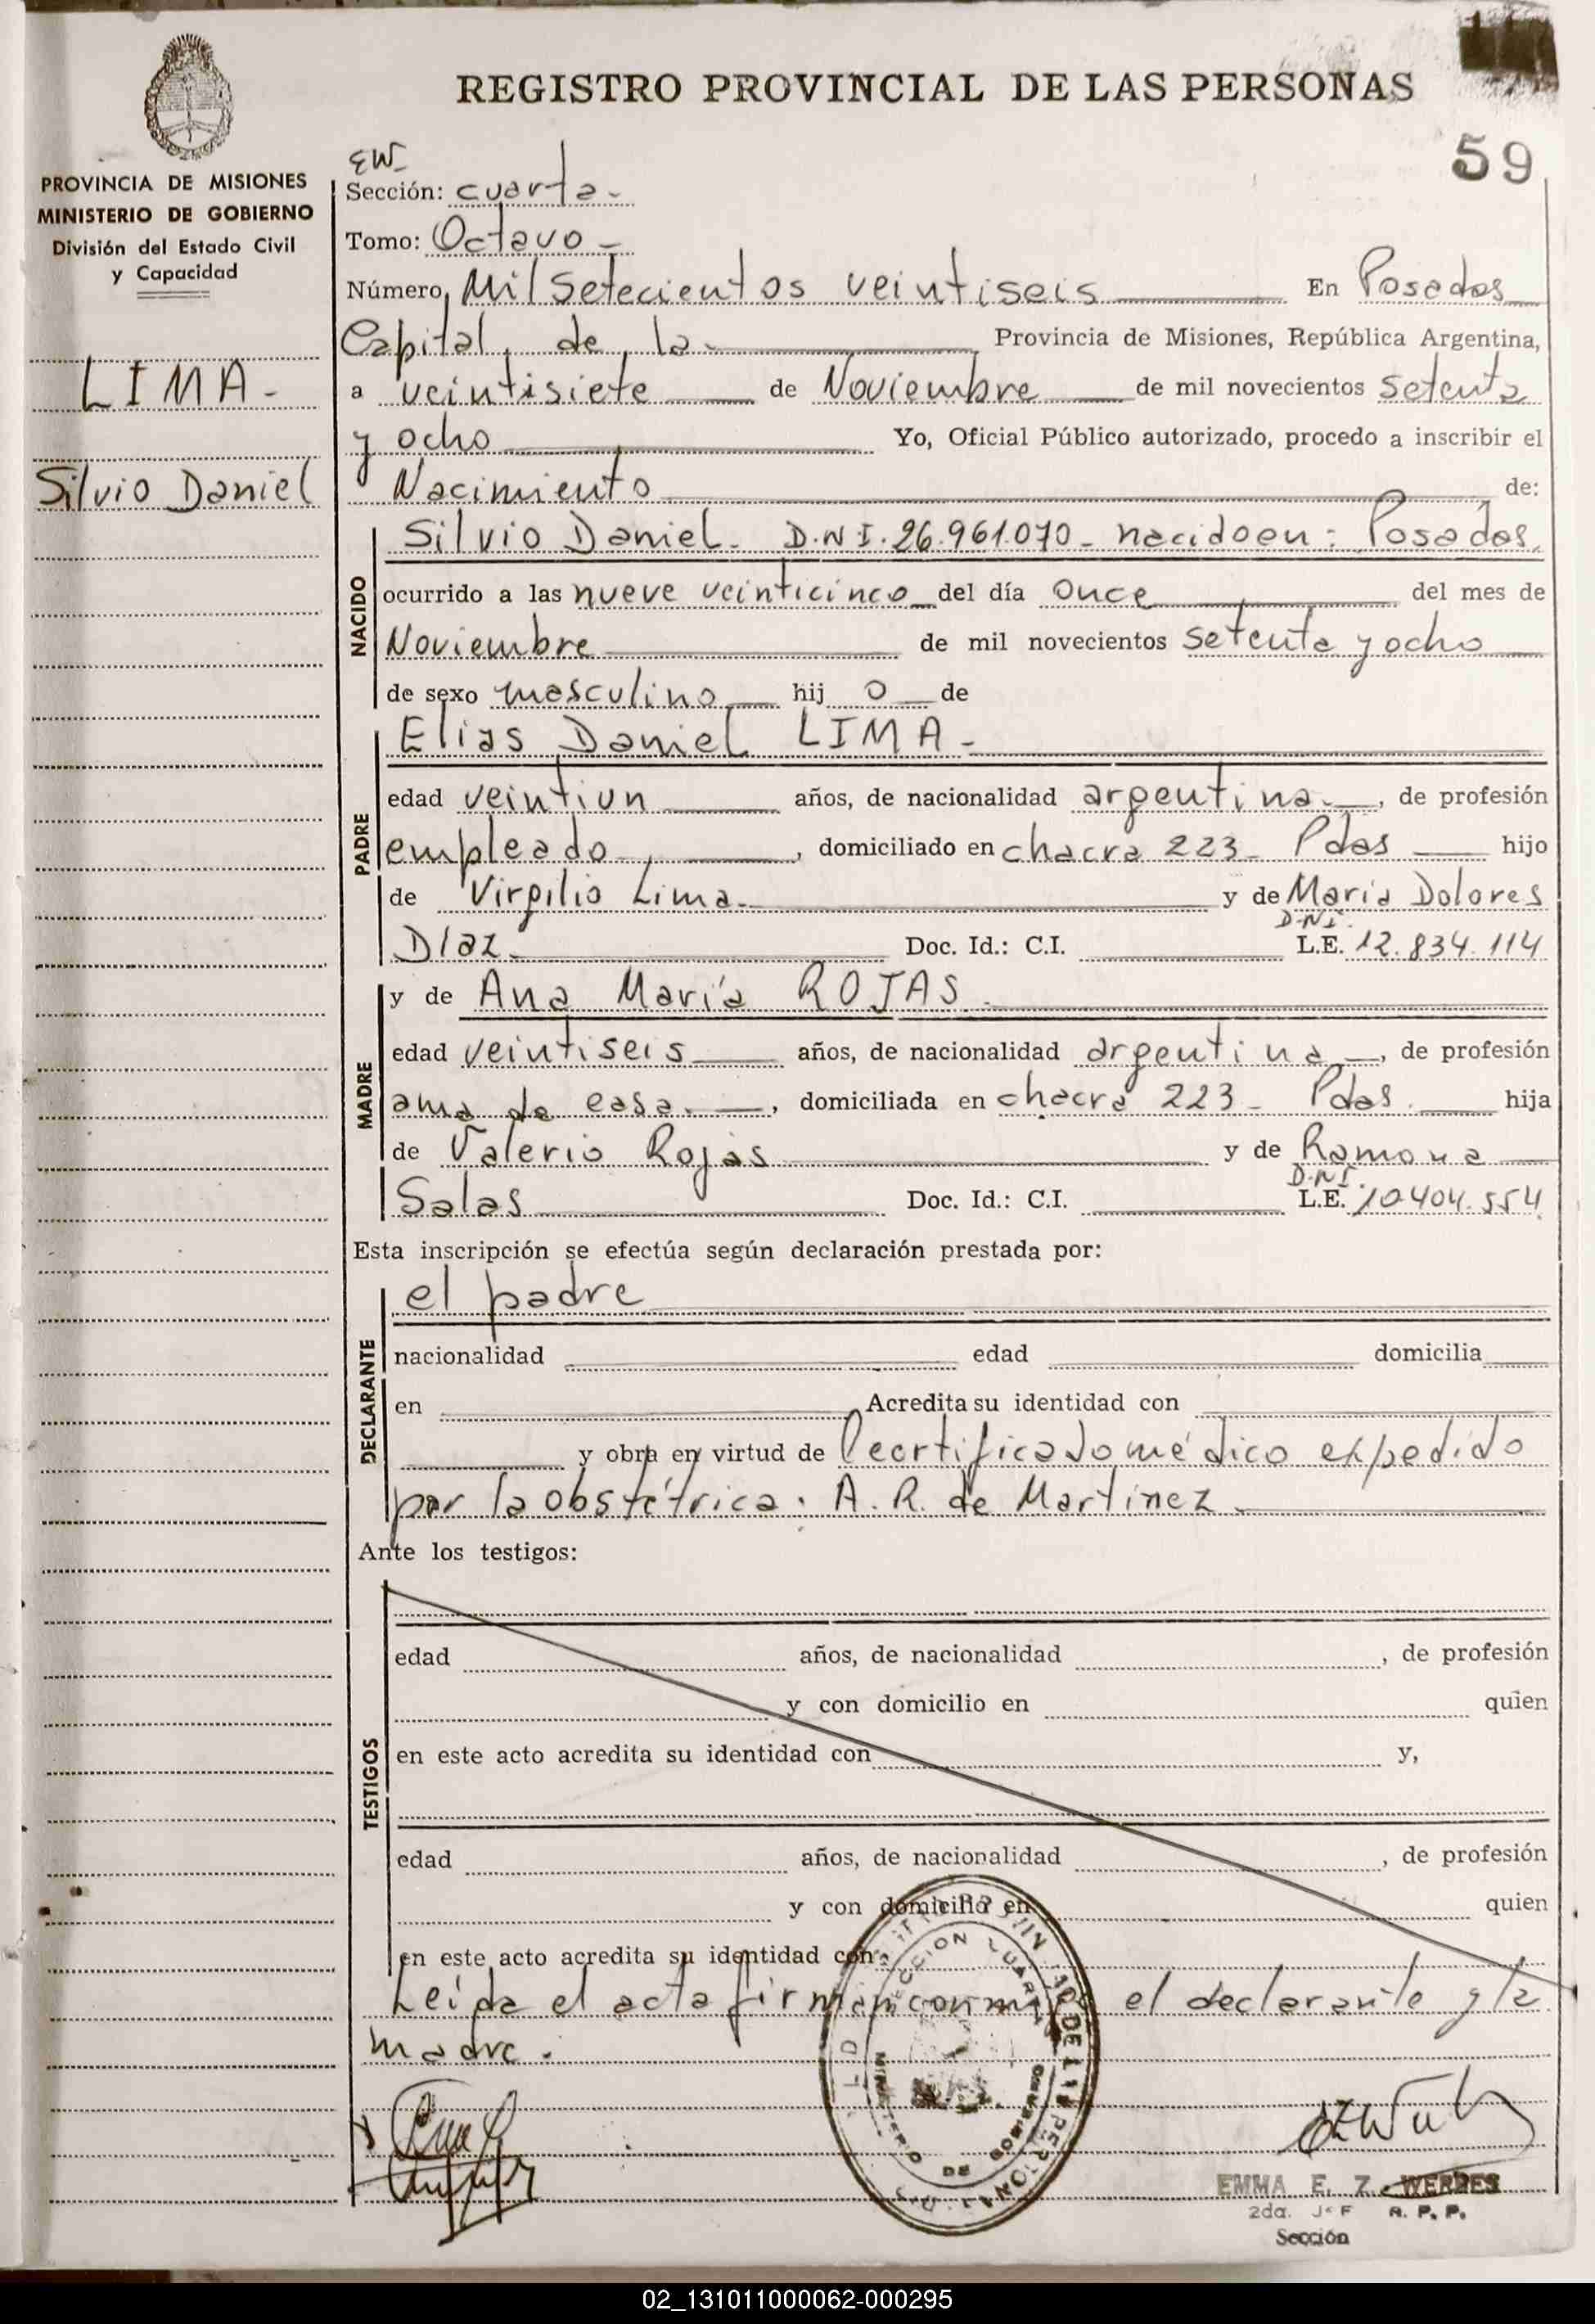 REGISTRO PROVINCIAL DE LAS PERSONAS
59
PROVINCIA DE MISIONES
MINISTERIO DE GOBIERNO
División del Estado Civil
y Capacidad
LIMA -
Silvio Daniel
EW-
Sección: cuarta -
Tomo: Octavo -
Número, Mil setecientos veintiseis En Posadas
Capital de la Provincia de Misiones, República Argentina,
a veintisiete de Noviembre de mil novecientos setenta
y ocho Yo, Oficial Público autorizado, procedo a inscribir el
Nacimiento de:
NACIDO
Silvio Daniel - D.N.I. 26.961.070 - nacido en: Posadas
ocurrido a las nueve veinticinco del día once del mes de
Noviembre de mil novecientos setenta y ocho
de sexo masculino hij o de
PADRE
Elias Daniel LIMA -
edad veintiun años, de nacionalidad argentina, de profesión
empleado, domiciliado en chacra 223 - Pdas hijo
de Virgilio Lima y de Maria Dolores
D.N.I.
Díaz Doc. Id.: C.I. L.E. 12.834.114
MADRE
y de Ana María ROJAS
edad veintiseis años, de nacionalidad argentina, de profesión
ama de casa, domiciliada en chacra 223 - Pdas. hija
de Valerio Rojas y de Ramona
D.N.I.
Salas Doc. Id.: C.I. L.E. 10.404.554
Esta inscripción se efectúa según declaración prestada por:
DECLARANTE
el padre
nacionalidad edad domicilia
en Acredita su identidad con
y obra en virtud de certificado médico expedido
por la obstétrica. A. R. de Martinez
Ante los testigos:
TESTIGOS
edad años, de nacionalidad , de profesión
y con domicilio en quien
en este acto acredita su identidad con y,
edad años, de nacionalidad , de profesión
y con domicilio en quien
en este acto acredita su identidad con
Leída el acta firman conmigo el declarante y la
madre.
MINISTERIO DE GOBIERNO
EMMA E. Z. WERBES
2da. R. P. P.
Sección
02_131011000062-000295